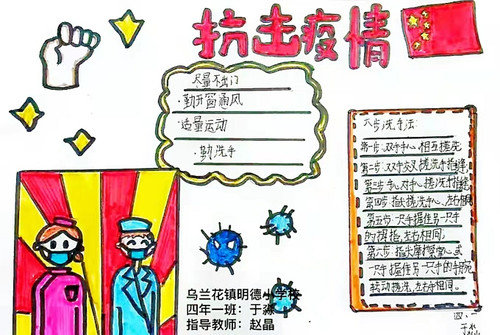 抗击疫情
尽量不出门
·勤开窗通风
·适量运动
·勤洗手
六步洗手法:
第一步:双手手心相互搓洗
第二步:双手交叉搓洗手指缝
第三步:手心对手心搓洗手指缝
第四步:指尖搓洗手心,左右相同
第五步:一只手握住另一只手
的拇指,左右相同。
第六步:指尖摩擦掌心或
一只手握住另一只手的手腕
转动搓洗,左右手相同。
四、一
于淼
乌兰花镇明德小学校
四年一班:于淼
指导教师:赵晶